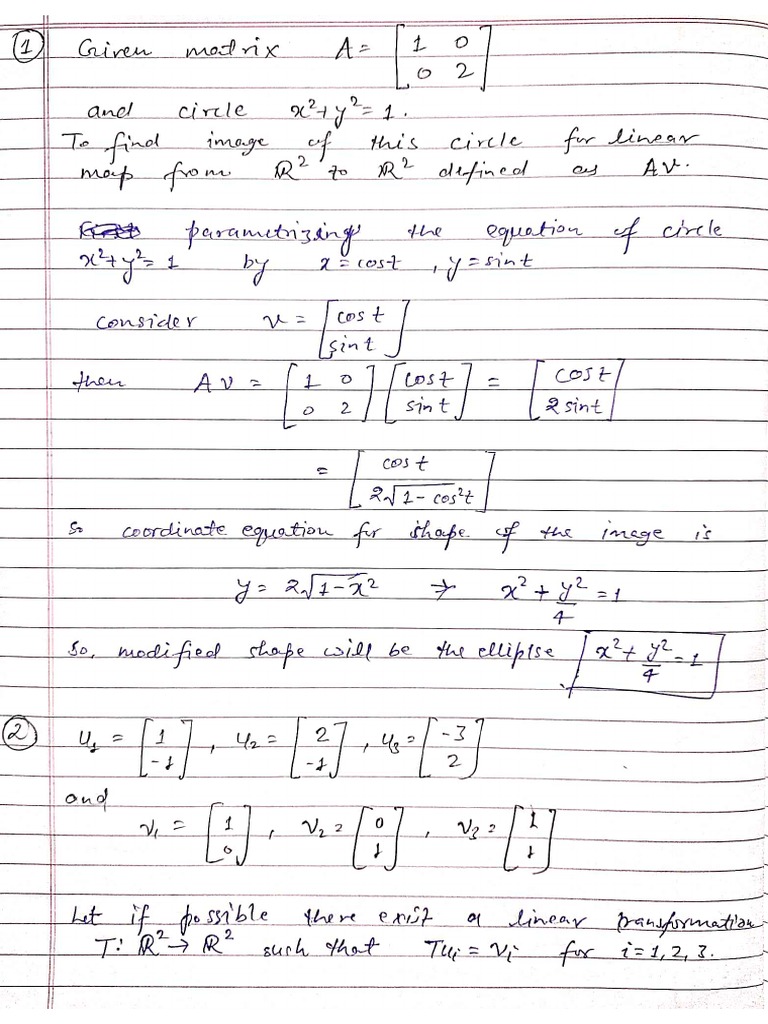 ① Given matrix A = [1 0
0 2]
and circle x²+y²=1.
To find image of this circle for linear
map from ℝ² to ℝ² defined as AV.
parametrizing the equation of circle
x²+y²=1 by x=cost, y=sint
consider v = [cost
sint]
then Av = [1 0
0 2] [cost
sint] = [cost
2sint]
= [cost
2√1-cos²t]
so coordinate equation for shape of the image is
y = 2√1-x² → x²+y²/4=1
So, modified shape will be the elliptse x²+y²/4=1
② u₁ = [1
-1], u₂ = [2
-1], u₃ = [-3
2]
and
v₁ = [1
0], v₂ = [0
1], v₃ = [1
1]
Let if possible there exist a linear transformation
T: ℝ²→ℝ² such that Tuᵢ = vᵢ for i=1,2,3.